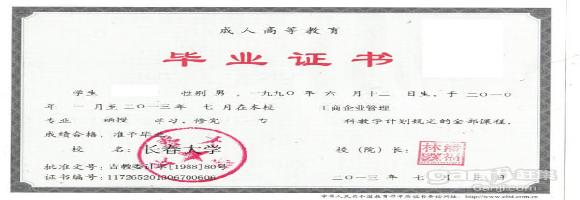 成人高等教育
毕业证书
学生 性别 男，一九九〇年 六 月 十二 日生，于 二〇一〇
年 一 月至 二〇一三 年 七 月在本校 工商企业管理
专业 函授 学习，修完 专 科教学计划规定的全部课程，
成绩合格，准予毕业。
校 名： 长春大学 校（院）长：
批准文号：吉教 [1988]80号
证书编号：117265201306700606 二〇一三 年 七
赶集网
Ganji.com